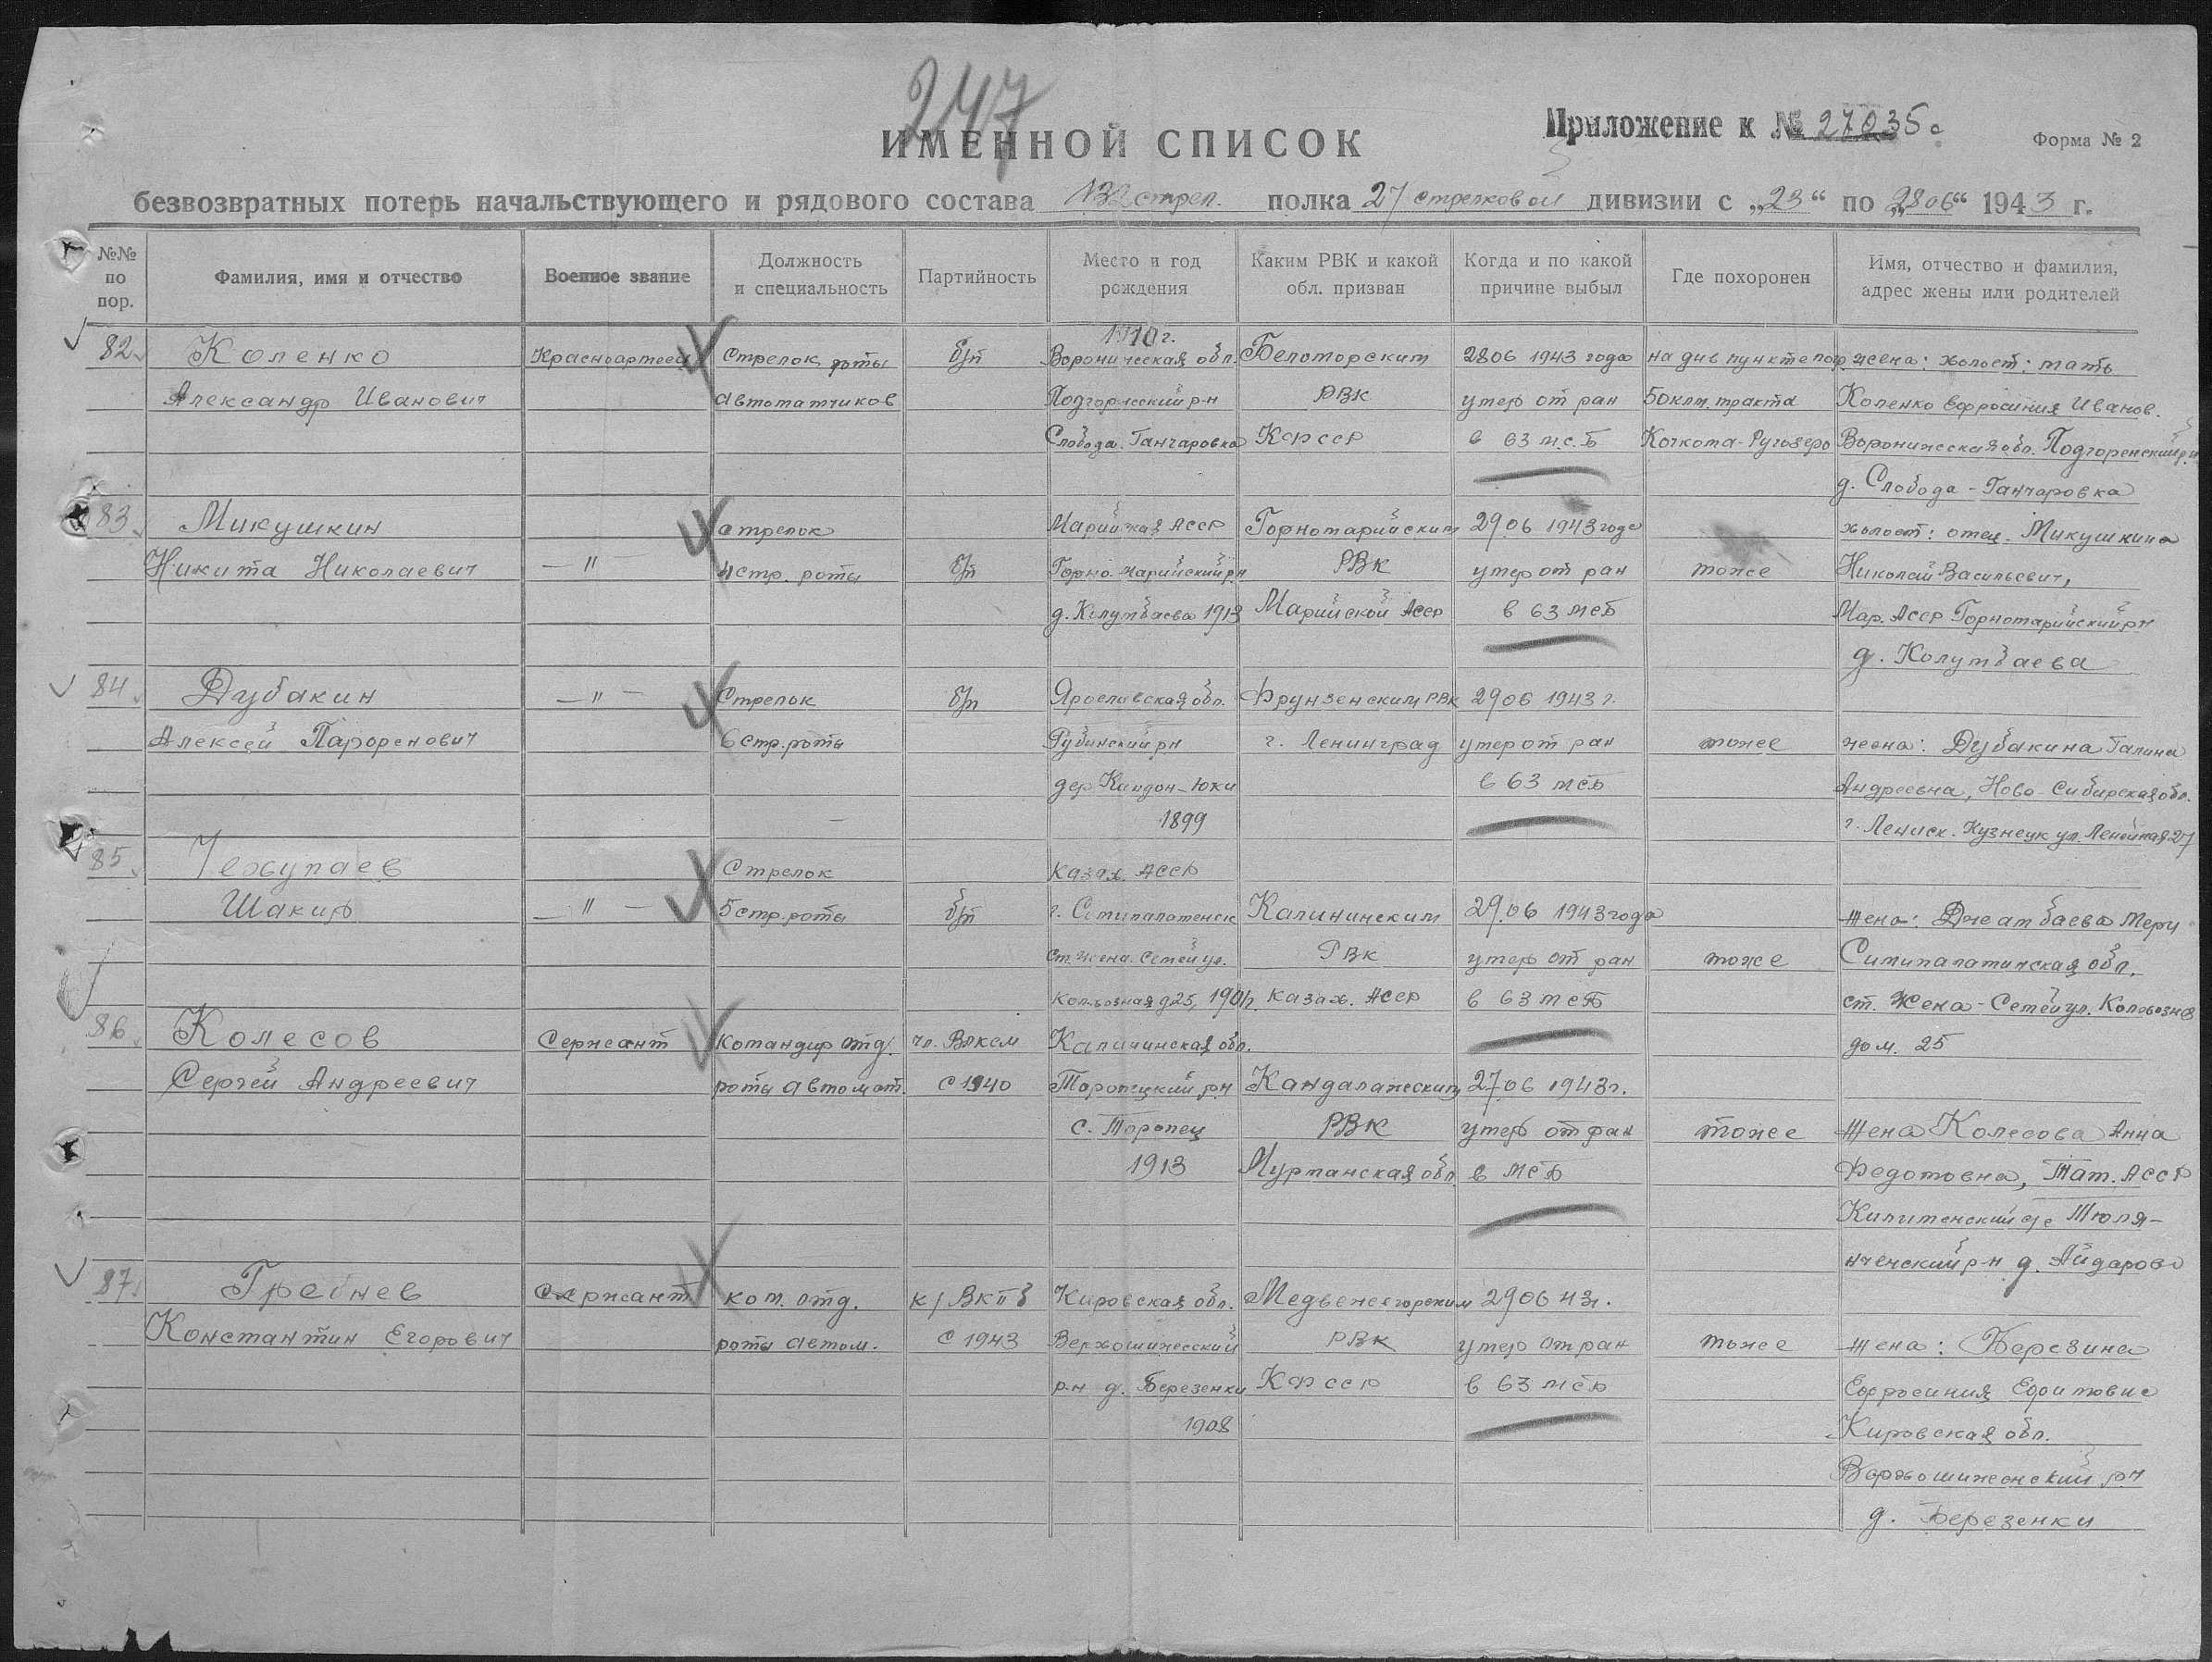 247
ИМЕННОЙ СПИСОК
Приложение к № 27035с
Форма № 2
безвозвратных потерь начальствующего и рядового состава 132 стрел. полка 27 стрелковой дивизии с „23“ по „2806“ 1943 г.
№№ по пор.
Фамилия, имя и отчество
Военное звание
Должность и специальность
Партийность
Место и год рождения
Каким РВК и какой обл. призван
Когда и по какой причине выбыл
Где похоронен
Имя, отчество и фамилия, адрес жены или родителей
1910 г.
82 Коленко Красноармеец Стрелок роты б/п Воронижская обл. Беломорским 28 06 1943 года на див пункте пог. жена: холост: мать
Александр Иванович автоматчиков Подгорнский р-н РВК умер от ран 50 клм. тракта Коленко Ефросиния Иванов.
Слобода Ганчаровка КФССР в 63 м.с.б Кочкома-Ругозеро Воронижская обл. Подгоренский р.н
д. Слобода-Ганчаровка
83 Микушкин стрелок Марийская АССР Горномарийским 29.06 1943 года холост: отец. Микушкина
Никита Николаевич —"— 4 стр. роты б/п Горно-Марийский р.н РВК умер от ран тоже Николай Васильевич,
д. Колумбаева 1913 Марийской АССР в 63 мсб Мар. АССР Горномарийский рн
д. Колумбаева
84 Дубакин —"— Стрелок б/п Ярославская обл. Фрунзенским РВК 29 06 1943 г.
Алексей Парфенович 6 стр. роты рн г. Ленинград умер от ран тоже жена: Дубакина Галина
дер. Кандон-Юки в 63 мсб Андреевна, Ново-Сибирская обл.
1899 г. Ленинск. Кузнецк ул. 27
85 Стрелок Казах. АССР
Шакир —"— 5 стр. роты б/п г. Семипалатенск Калининским 29.06 1943 года жена: Джеамбаева Мери
ст. Жена-Семей ул. РВК умер от ран тоже Симипалатинская обл.
колхозная д 25, казах. АССР в 63 мсб ст. Жена-Семей ул. Колхозна
86 Колесов Сержант Командир отд. чл. Влксм Калининская обл. дом. 25
Сергей Андреевич роты автомат. с 1940 Торопецкий р.н Кандалажским 27.06 1943 г.
с. Торопец РВК умер от ран тоже жена Колесова Анна
1913 Мурманская обл. в мсб Федотовна, Тат. АССР
Тюля-
нченский р-н д. Айдарово
87 Гребнев Сержант ком. отд. к/ ВКПб Кировская обл. Медвежегорским 29 06 43 г.
Константин Егорович роты автом. с 1943 Верхошижеский РВК умер от ран тоже жена: Березина
р-н д. Березенки КФССР в 63 мсб Ефросиния Ефимовна
1908 Кировская обл.
Верхошиженский р-н
д. Березенки